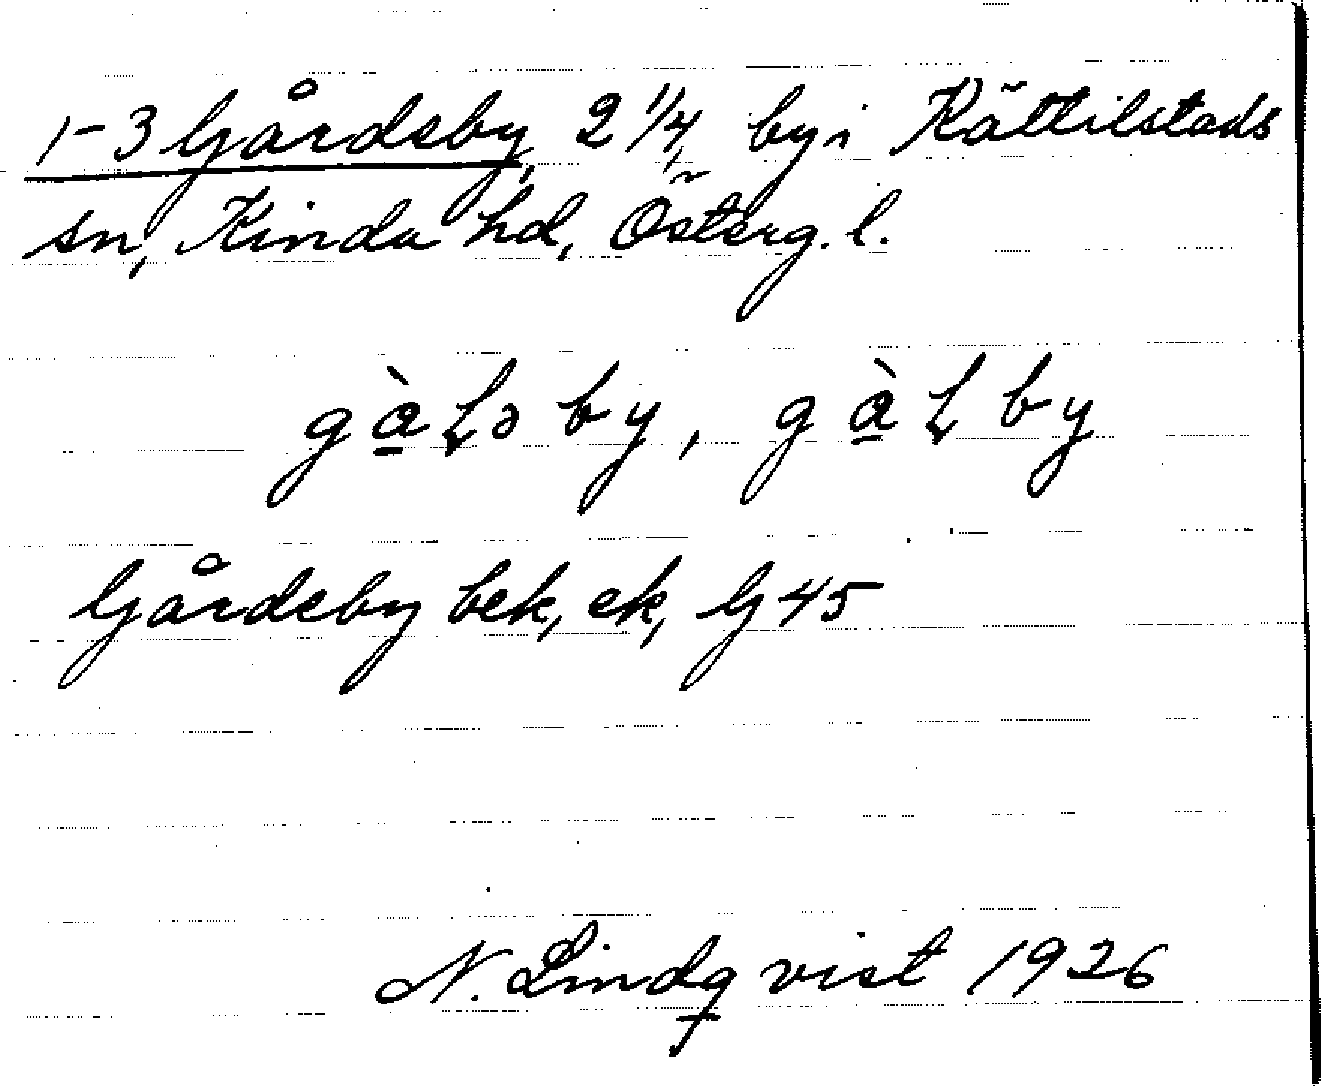 1-3 Gårdsby, 2 1/4, by i Kättilstads
sn, Kinda hd, Österg. l.
gàLsby, gàLby
Gårdsby bek, ek, G 45
N. Lindqvist 1926